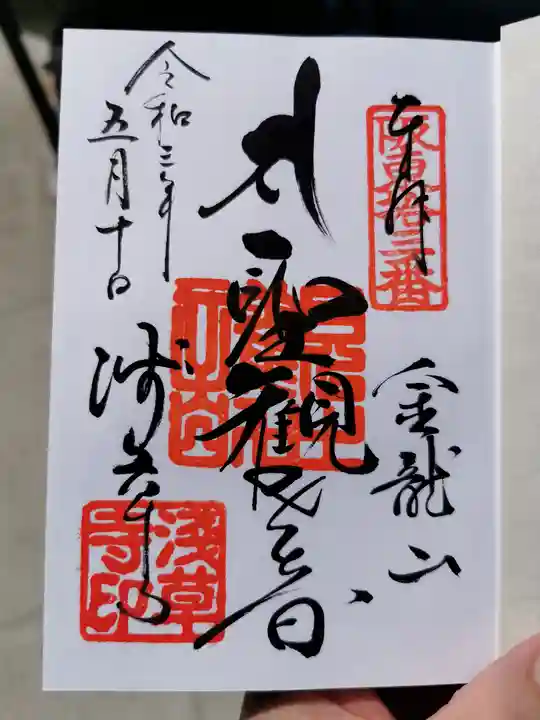 奉拝
阪東拾三番
金龍山
聖観世音
浅草寺
浅草寺印
令和三年
五月十日